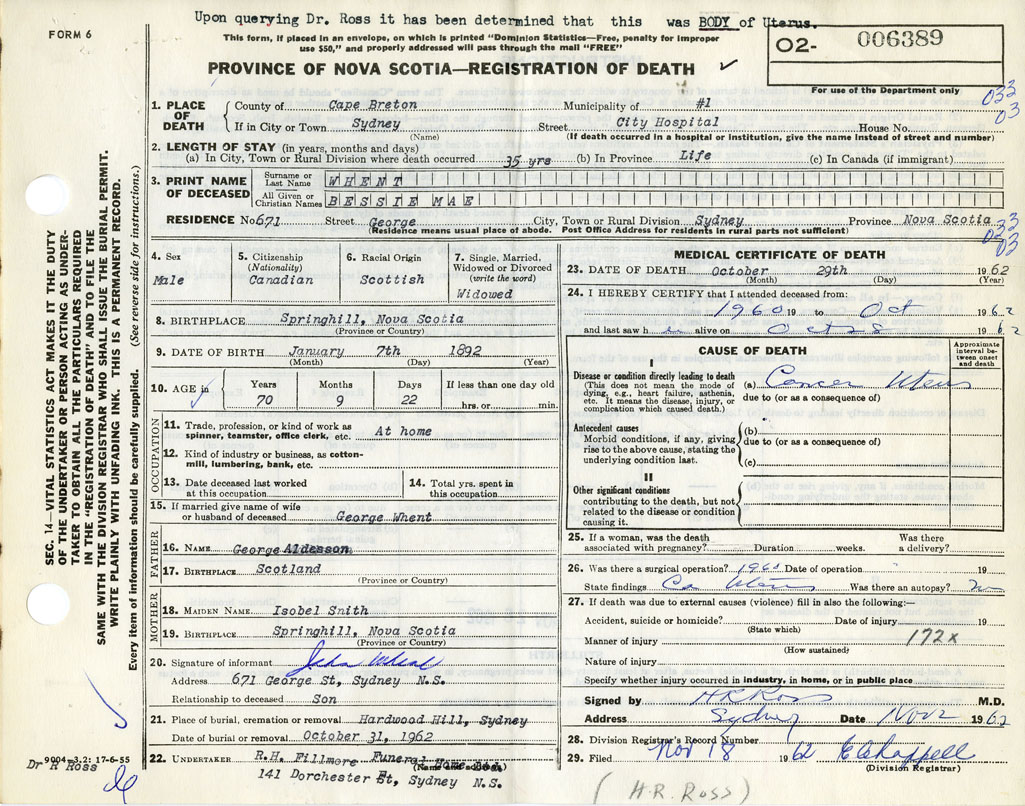 Upon querying Dr. Ross it has been determined that this was BODY of Uterus.
FORM 6
This form, if placed in an envelope, on which is printed "Dominion Statistics—Free, penalty for improper
use $50," and properly addressed will pass through the mail "FREE"
O2- 006389
For use of the Department only
PROVINCE OF NOVA SCOTIA—REGISTRATION OF DEATH ✓
033
03
1. PLACE OF DEATH
County of Cape Breton Municipality of #1
If in City or Town Sydney Street City Hospital House No.
(Name) (If death occurred in a hospital or institution, give the name instead of street and number)
2. LENGTH OF STAY (in years, months and days)
(a) In City, Town or Rural Division where death occurred 35 yrs (b) In Province Life (c) In Canada (if immigrant)
3. PRINT NAME OF DECEASED
Surname or Last Name WHENT
All Given or Christian Names BESSIE MAE
RESIDENCE No 671 Street George City, Town or Rural Division Sydney Province Nova Scotia
(Residence means usual place of abode. Post Office Address for residents in rural parts not sufficient)
033
03
4. Sex Male
5. Citizenship (Nationality) Canadian
6. Racial Origin Scottish
7. Single, Married, Widowed or Divorced (write the word) Widowed
8. BIRTHPLACE Springhill, Nova Scotia
(Province or Country)
9. DATE OF BIRTH January 7th 1892
(Month) (Day) (Year)
10. AGE in Years 70 Months 9 Days 22 If less than one day old hrs. or min.
OCCUPATION
11. Trade, profession, or kind of work as spinner, teamster, office clerk, etc. At home
12. Kind of industry or business, as cotton-mill, lumbering, bank, etc.
13. Date deceased last worked at this occupation
14. Total yrs. spent in this occupation
15. If married give name of wife or husband of deceased George Whent
FATHER
16. NAME George
17. BIRTHPLACE Scotland
(Province or Country)
MOTHER
18. MAIDEN NAME Isobel Snith
19. BIRTHPLACE Springhill, Nova Scotia
(Province or Country)
20. Signature of informant
Address 671 George St, Sydney N.S.
Relationship to deceased Son
21. Place of burial, cremation or removal Hardwood Hill, Sydney
Date of burial or removal October 31, 1962
22. UNDERTAKER R.H. Fillmore Funeral Home
(Name and address)
141 Dorchester St, Sydney N.S.
MEDICAL CERTIFICATE OF DEATH
23. DATE OF DEATH October 29th 1962
(Month) (Day) (Year)
24. I HEREBY CERTIFY that I attended deceased from:
1960 19 to Oct 1962
and last saw h alive on 1962
CAUSE OF DEATH
Approximate interval between onset and death
I
Disease or condition directly leading to death
(This does not mean the mode of dying, e.g., heart failure, asthenia, etc. It means the disease, injury, or complication which caused death.)
(a) Cancer Uterus
due to (or as a consequence of)
Antecedent causes
Morbid conditions, if any, giving rise to the above cause, stating the underlying condition last.
(b)
due to (or as a consequence of)
(c)
II
Other significant conditions
contributing to the death, but not related to the disease or condition causing it.
25. If a woman, was the death associated with pregnancy? Duration weeks. Was there a delivery?
26. Was there a surgical operation? 1960 Date of operation 19
State findings Ca Uterus Was there an autopsy? no
27. If death was due to external causes (violence) fill in also the following:—
Accident, suicide or homicide? Date of injury 19
(State which)
Manner of injury 172x
(How sustained)
Nature of injury
Specify whether injury occurred in industry, in home, or in public place
Signed by H R Ross M.D.
Address Sydney Date Nov 2 1962
28. Division Registrar's Record Number
29. Filed Nov 18 1962 E Chappell
(Division Registrar)
(H.R. ROSS)
SEC. 14—VITAL STATISTICS ACT MAKES IT THE DUTY
OF THE UNDERTAKER OR PERSON ACTING AS UNDER-
TAKER TO OBTAIN ALL THE PARTICULARS REQUIRED
IN THE "REGISTRATION OF DEATH" AND TO FILE THE
SAME WITH THE DIVISION REGISTRAR WHO SHALL ISSUE THE BURIAL PERMIT.
WRITE PLAINLY WITH UNFADING INK. THIS IS A PERMANENT RECORD.
Every item of information should be carefully supplied. (See reverse side for instructions.)
9004—3.2: 17-6-55
Dr R Ross